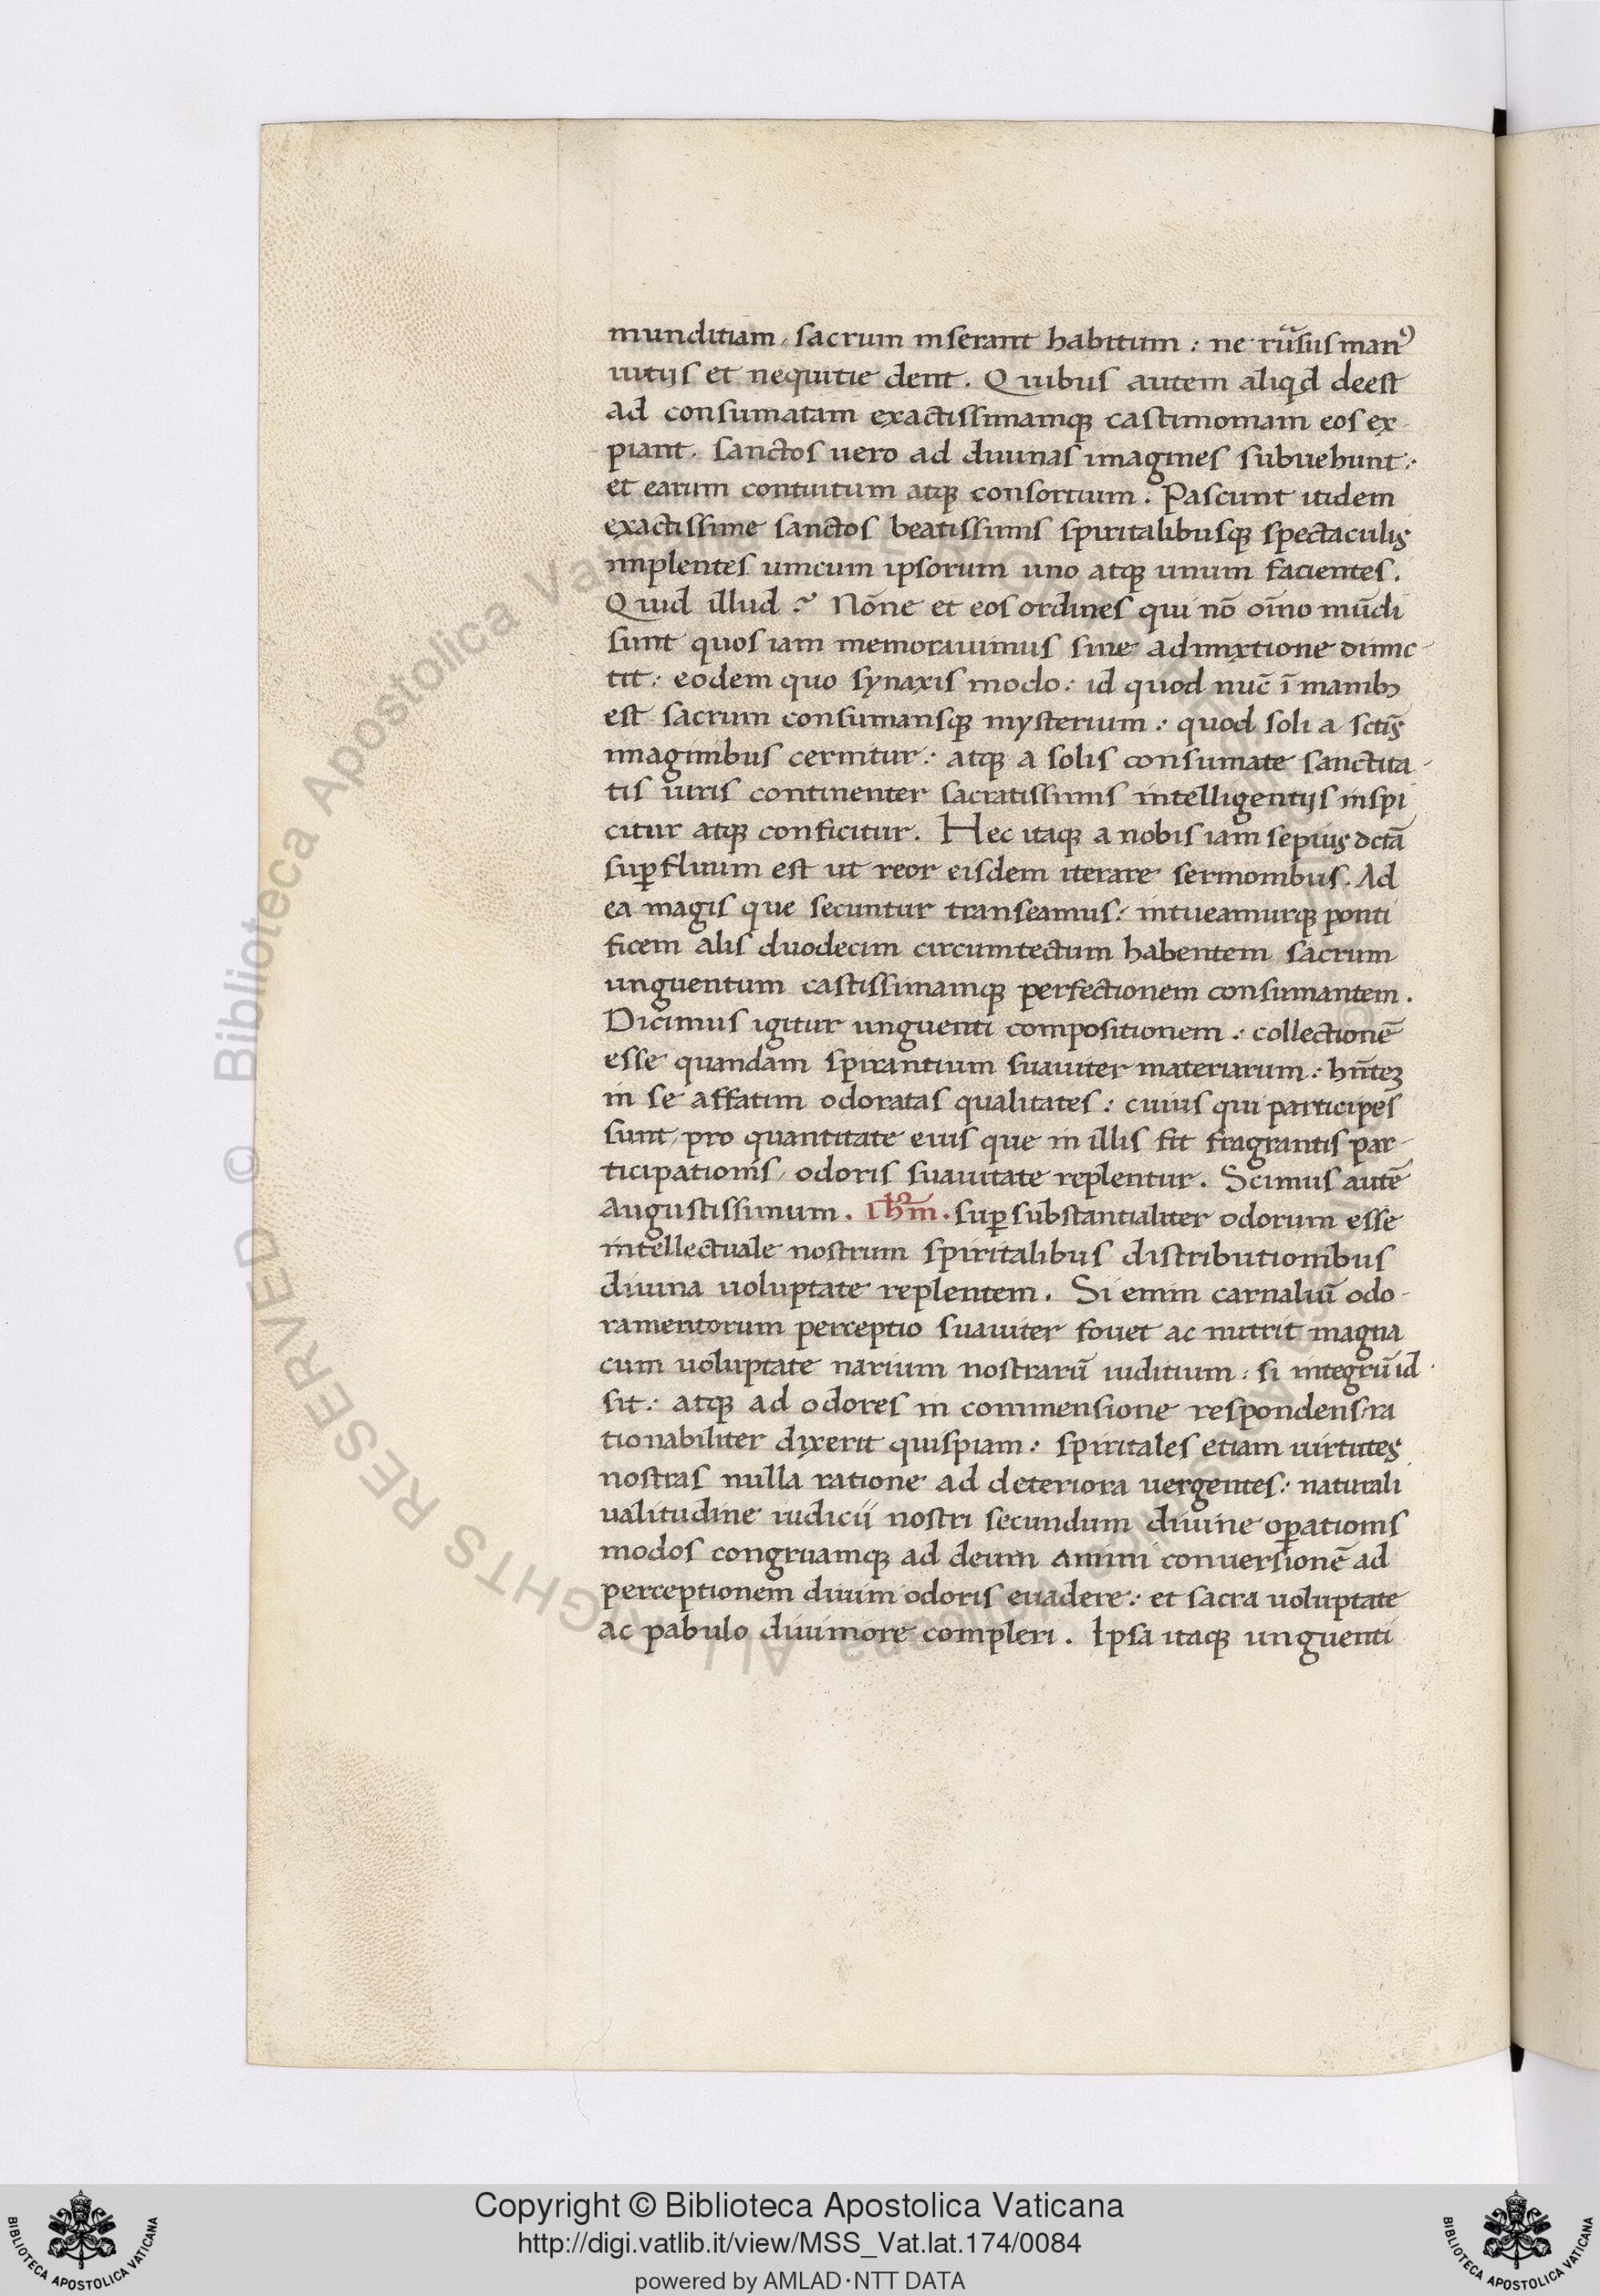 munditiam, sacrum inserant habitum : ne rūsus manꝰ
uitijs et nequitie dent. Quibus autem aliqd deest
ad consumatam exactissimamqꝫ castimoniam eos ex
piant. Sanctos uero ad diuinas imagines subuehunt :
et earum contuitum atqꝫ consortium. Pascunt itidem
exactissime sanctos beatissimis spiritalibusqꝫ spectaculis
implentes unicum ipsorum uno atqꝫ unum facientes.
Quid illud ? Nōne et eos ordines qui nō oīno mūdi
sunt quos iam memorauimus sine admixtione dimic-
tit : eodem quo synaxis modo : id quod nūc ī manibꝫ
est sacrum consumansqꝫ mysterium : quod soli a sctīs
imaginibus cernitur : atqꝫ a solis consumate sanctita-
tis uiris continenter sacratissimis intelligentijs inspi
citur atqꝫ conficitur. Hec itaqꝫ a nobis iam sepius dctā
suꝑfluum est ut reor eisdem iterare sermonibus. Ad
ea magis que secuntur transeamus : intueamurqꝫ ponti
ficem alis duodecim circumtectum habentem sacrum
unguentum castissimamqꝫ perfectionem consumantem.
Dicimus igitur unguenti compositionem : collectionē
esse quandam spirantium suauiter materiarum : hn̄teꝫ
in se affatim odoratas qualitates : cuius qui participes
sunt, pro quantitate eius que in illis fit fragrantis par-
ticipationis, odoris suauitate replentur. Scimus autē
Augustissimum. Ihm̄. suꝑsubstantialiter odorum esse
intellectuale nostrum spiritalibus distributionibus
diuina uoluptate replentem. Si enim carnaliū odo-
ramentorum perceptio suauiter fouet ac nutrit magna
cum uoluptate narium nostrarū iuditium : si integrū id
sit : atqꝫ ad odores in commensione respondens, ra
tionabiliter dixerit quispiam : spiritales etiam uirtutes
nostras nulla ratione ad deteriora uergentes : naturali
ualitudine iudicii nostri secundum diuine oꝑationis
modos congruamqꝫ ad deum animi conuersionē ad
perceptionem diuini odoris euadere : et sacra uoluptate
ac pabulo diuiniore compleri. Ipsa itaqꝫ unguenti
© Biblioteca Apostolica Vaticana ALL RIGHTS RESERVED
Copyright © Biblioteca Apostolica Vaticana
http://digi.vatlib.it/view/MSS_Vat.lat.174/0084
powered by AMLAD·NTT DATA
BIBLIOTECA APOSTOLICA VATICANA
BIBLIOTECA APOSTOLICA VATICANA